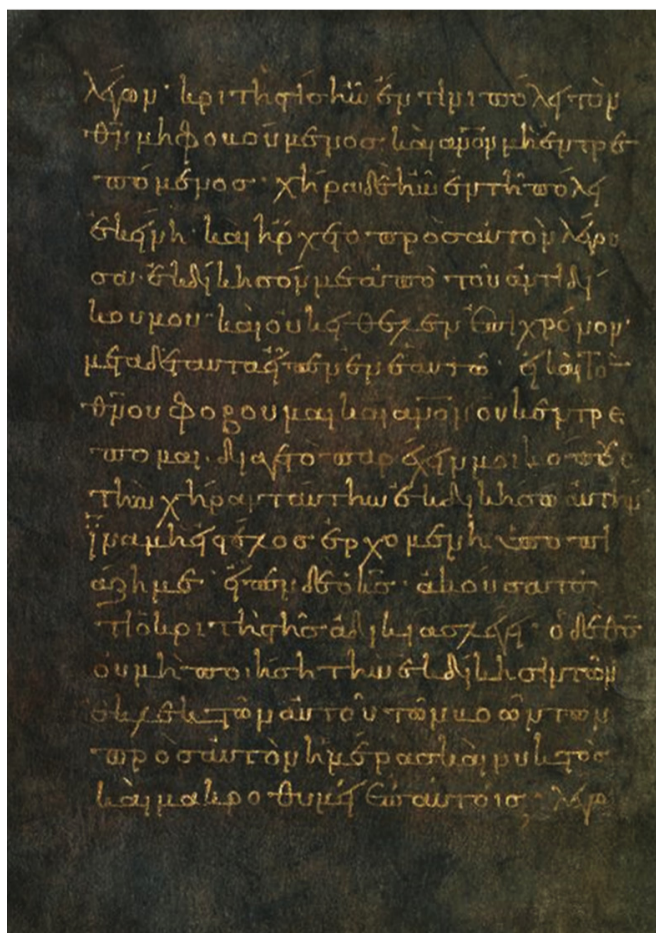 λέγων· κριτὴς ἦν ἔν τινι πόλει τὸν
θν μὴ φοβούμενος· καὶ ἄνον μὴ ἐντρε
πόμενος· χήρα δὲ ἦν ἐν τῇ πόλει
ἐκείνῃ· καὶ ἤρχετο πρὸς αὐτὸν λέγου
σα· ἐκδίκησόν με ἀπὸ τοῦ ἀντιδί
κου μου· καὶ οὐκ ἤθελεν ἐπὶ χρόνον·
μετὰ δὲ ταῦτα εἶπεν ἐν ἑαυτῷ· εἰ καὶ τὸν
θν οὐ φοβοῦμαι καὶ ἄνον οὐκ ἐντρέ
πομαι· διά γε τὸ παρέχειν μοι κόπους
τὴν χήραν ταύτην ἐκδικήσω αὐτήν
ἵνα μὴ εἰς τέλος ἐρχομένη ὑποπι
άζῃ με· εἶπεν δὲ ὁ κς· ἀκούσατε
τί ὁ κριτὴς τῆς ἀδικίας λέγει· ὁ δὲ θς
οὐ μὴ ποιήσῃ τὴν ἐκδίκησιν τῶν
ἐκλεκτῶν αὐτοῦ τῶν βοώντων
πρὸς αὐτὸν ἡμέρας καὶ νυκτὸς
καὶ μακροθυμεῖ ἐπ αὐτοῖς· λέγω